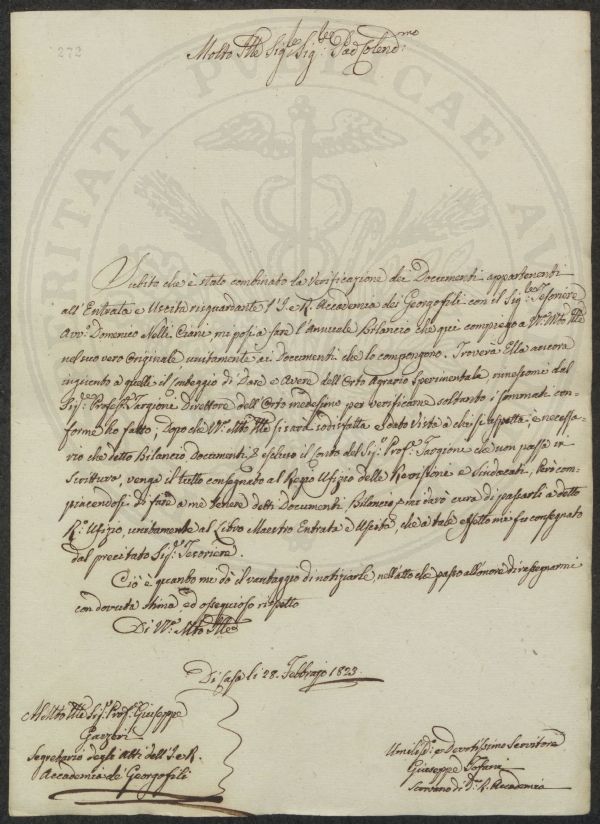 272
Molto Ill.e Sig.re Sig.re Pad. Colend.mo
Subito che è stato combinato la Verificazione dei Documenti appartenenti
all'Entrata e Uscita risguardante l'I. e R. Accademia dei Georgofili con il Sig.re Tesoriere
Avv.o Domenico Nelli Ciani mi posi a fare l'Annuale Bilancio che qui compiego a V.S. Mto Ill.e
nel suo vero Originale unitamente ai Documenti che lo compongono. Troverà Ella ancora
inquanto a quelli il Conteggio di Dare e Avere dell'Orto Agrario Sperimentale rimessomi dal
Sig.e Profess.e Targioni Direttore dell'Orto medesimo per verificarne soltanto i sommati con-
forme ho fatto; Dopo che V.S. Mto Ill.e si sarà sodisfatta e dato Vista a chi si aspetta, è necessa-
rio che detto Bilancio Documenti, & escluso il Conto del Sig.e Prof.e Targioni che non passa in
Scrittura, venga il tutto consegnato al Regio Ufizio delle Revisioni e Sindacati, Però com-
piacendosi di fare a me tenere detti Documenti, Bilancio, & mi darò cura di passarli a detto
R.o Ufizio, unitamente al Libro Maestro Entrata e Uscita, che a tale effetto mi fu consegnato
dal precitato Sig.e Tesoriere.
Ciò è quanto mi dò il vantaggio di notiziarle nell'atto che passo all'onore di rassegnarmi
con dovuta stima, ed ossequioso rispetto
Di V.S. Mto Ill.e
Di Casa li 28. Febbrajo 1823.
Al Mto Ill.e Sig.e Prof.e Giuseppe
Gazzeri
Segretario degli Atti dell'I. e R.
Accademia de Georgofili
Umiliss.o e Devotissimo Servitore
Giuseppe Tofani
Scrivano di D.a R. Accademia
RITATI PUBLICAE AU